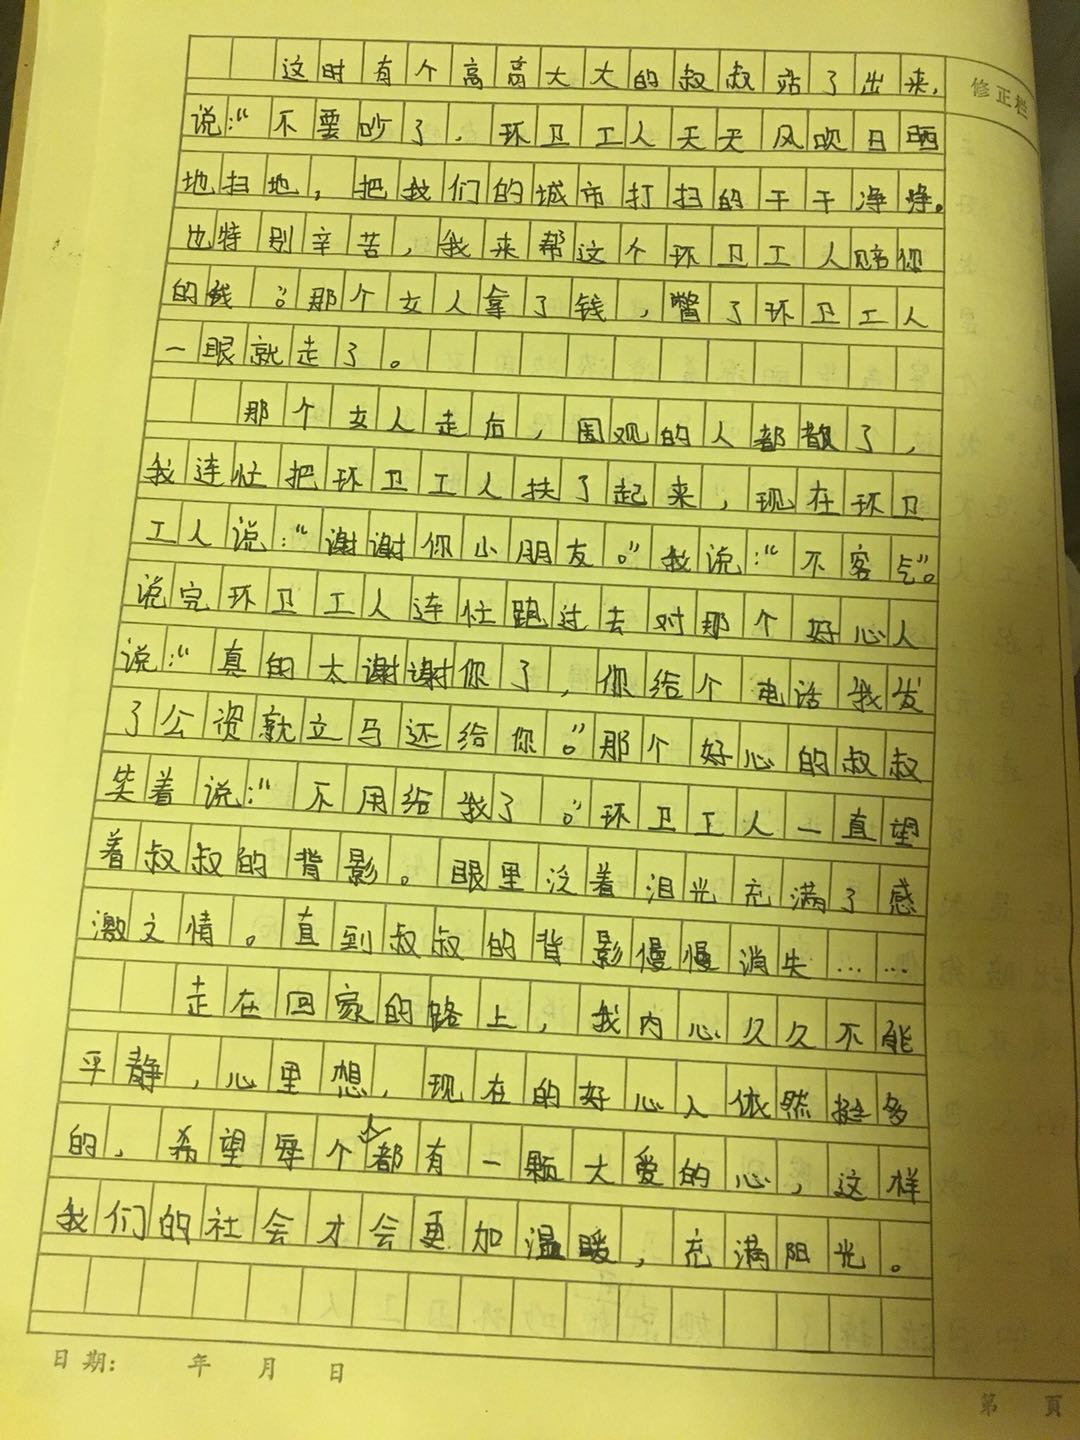 这时有个高高大大的叔叔站了出来，
修正栏
说：“不要吵了，环卫工人天天风吹日晒
地扫地，把我们的城市打扫的干干净净。
也特别辛苦，我来帮这个环卫工人赔你
的钱。”那个女人拿了钱，瞥了环卫工人
一眼就走了。
那个女人走后，围观的人都散了，
我连忙把环卫工人扶了起来，现在环卫
工人说：“谢谢你小朋友。”我说：“不客气”。
说完环卫工人连忙跑过去对那个好心人
说：“真的太谢谢你了，你给个电话我发
了公资就立马还给你。”那个好心的叔叔
笑着说：“不用给我了。”环卫工人一直望
着叔叔的背影。眼里泛着泪光充满了感
激之情。直到叔叔的背影慢慢消失……
走在回家的路上，我内心久久不能
平静，心里想，现在的好心人依然挺多
的，希望每个人都有一颗大爱的心，这样
我们的社会才会更加温暖，充满阳光。
日期： 年 月 日
第 页